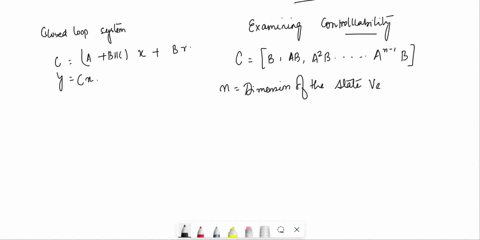 Closed loop system
C = (A + BIIC) x + Br.
y = Cx.
Examining Controlluability
C = [B, AB, A²B ..... Aⁿ⁻¹ B]
n = Dimension of the state Ve